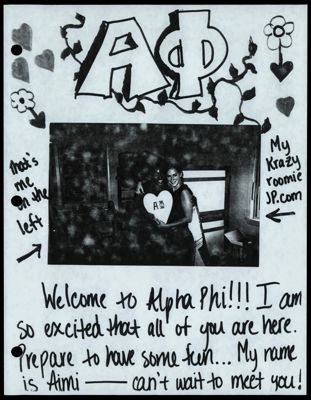 ΑΦ
that's
me
on the
left
My
Krazy
roomie
JP.com
ΑΦ
Welcome to Alpha Phi!!! I am
so excited that all of you are here.
Prepare to have some fun... My name
is Aimi — can't wait to meet you!